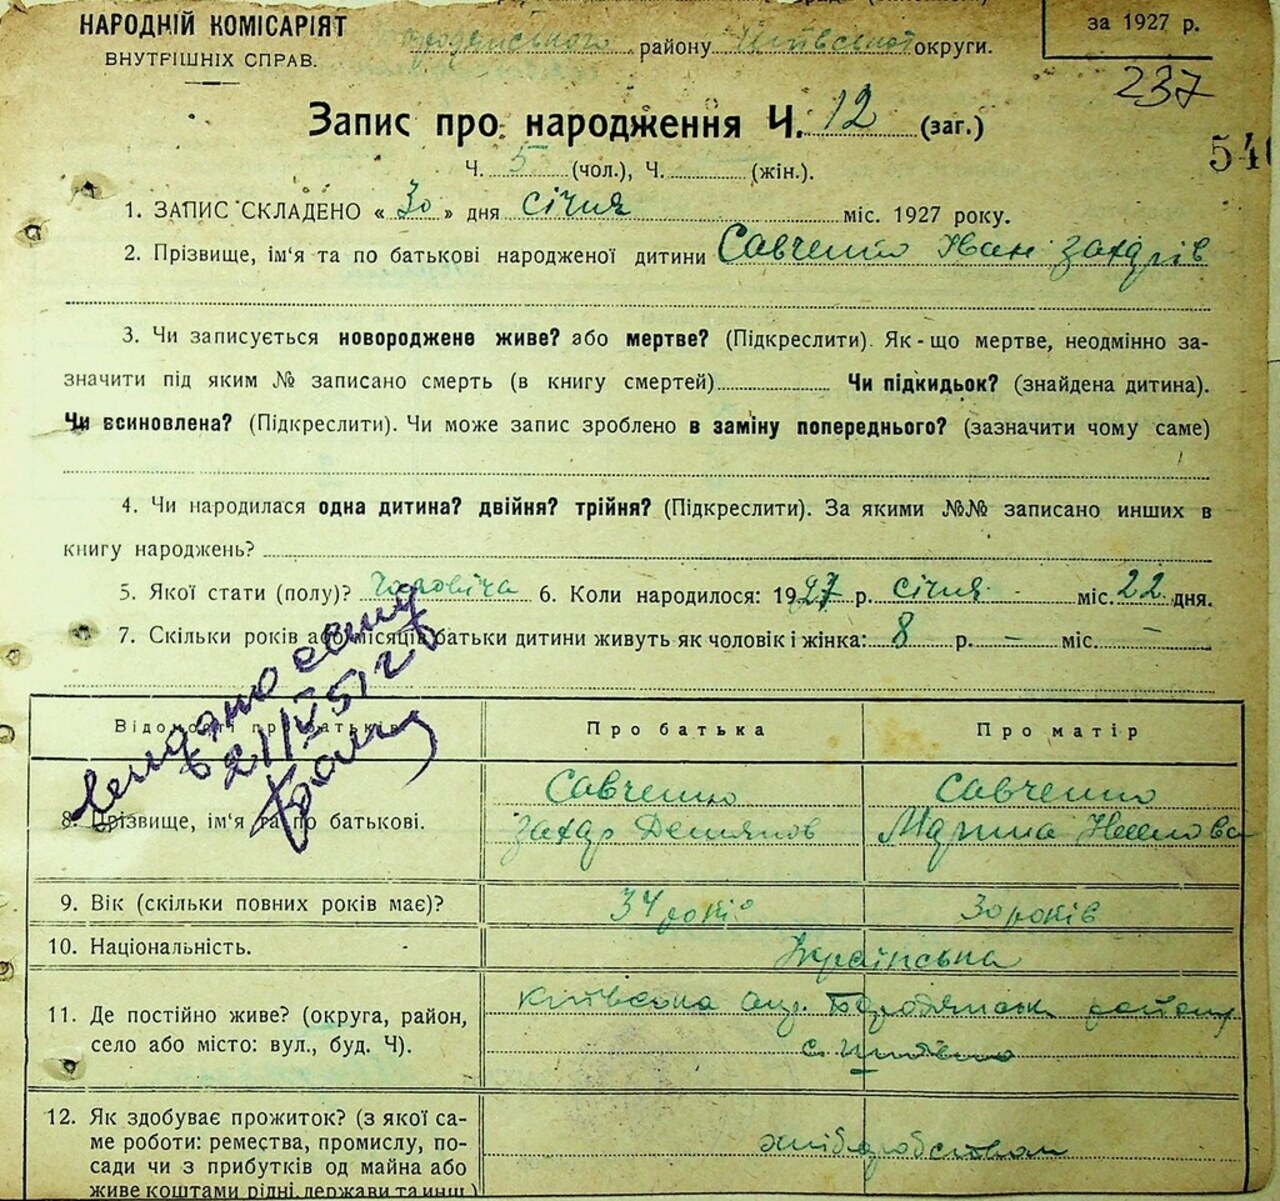 НАРОДНІЙ КОМІСАРІЯТ
ВНУТРІШНІХ СПРАВ.
району Київської округи.
за 1927 р.
237
540
Запис про народження Ч. 12 (заг.)
Ч. 5 (чол.), Ч. (жін.).
1. ЗАПИС СКЛАДЕНО « 30 » дня січня міс. 1927 року.
2. Прізвище, ім'я та по батькові народженої дитини Савченко Іван Захарів
3. Чи записується новороджене живе? або мертве? (Підкреслити). Як-що мертве, неодмінно за-
значити під яким № записано смерть (в книгу смертей) Чи підкидьок? (знайдена дитина).
Чи всиновлена? (Підкреслити). Чи може запис зроблено в заміну попереднього? (зазначити чому саме)
4. Чи народилася одна дитина? двійня? трійня? (Підкреслити). За якими №№ записано инших в
книгу народжень?
5. Якої стати (полу)? Чоловіча 6. Коли народилося: 1927 р. січня - міс. 22 дня.
7. Скільки років або місяців батьки дитини живуть як чоловік і жінка: 8 р. — міс. —
Відомості про батьків Про батька Про матір
8. Прізвище, ім'я та по батькові. Савченко Савченко
Захар Демянов Марина
9. Вік (скільки повних років має)? 34 років 30 років
10. Національність. Українська
11. Де постійно живе? (округа, район, Київська окр. Бородянськ району
село або місто: вул., буд. Ч). с.
12. Як здобуває прожиток? (з якої са-
ме роботи: ремества, промислу, по- хліборобством
сади чи з прибутків од майна або
живе коштами рідні, держави та инш.)